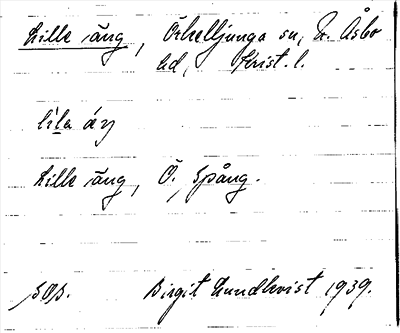 Lille äng, Örkelljunga sn, N. Åsbo
hd, Krist. l.
líla áŋ
Lille äng, Ö. Spång.
sOp. Birgit Lundkvist 1939.